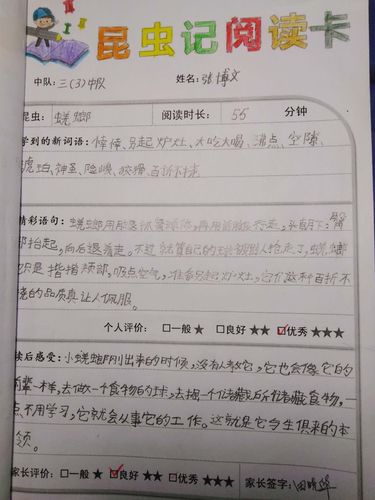 昆虫记阅读卡
中队：三(3)中队 姓名：张博文
昆虫：蜣螂 阅读时长：55 分钟
学到的新词语：悻悻、另起炉灶、大吃大喝、沸点、空隙、
琥珀、神圣、险峻、狡猾、百折不挠
精彩语句：蜣螂用 头朝下，臀
部抬起，向后退着走。不过就算自己的 被别人抢走了，蜣螂
也只是揩揩颊部，吸点空气，准备另起炉灶，它们这种百折不
挠的品质真让人佩服。
个人评价：□一般★ □良好★★ ☑优秀★★★
读后感受：小蜣螂刚出来的时候，没有人教它，它也会像它的
前辈一样，去做一个食物的球，去挖一个储藏后所储藏食物，一
点不用学习，它就会从事它的工作。这就是它与生俱来的本
领。
家长评价：□一般★ ☑良好★★ □优秀★★★ 家长签字：田